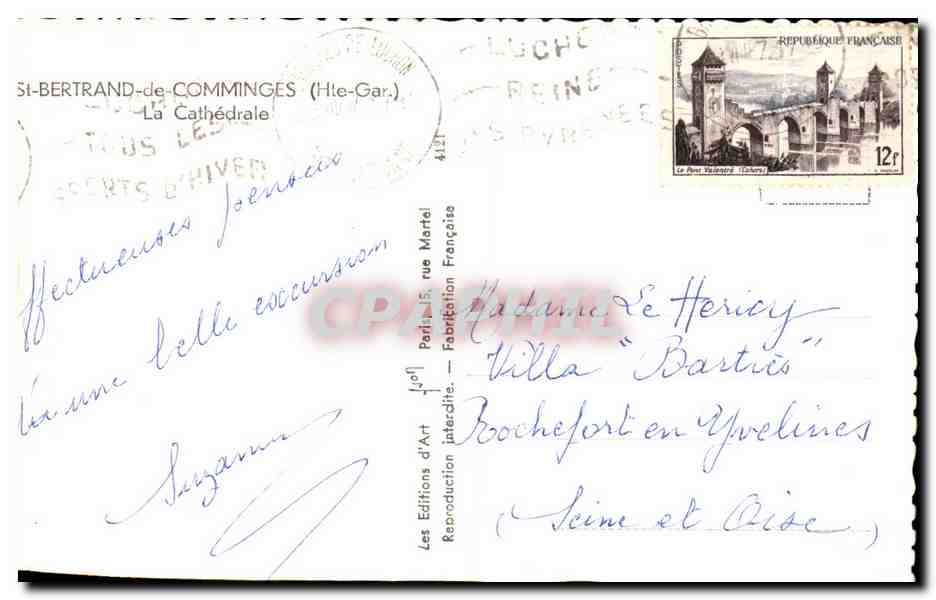 St-BERTRAND-de-COMMINGES (Hte-Gar.)
La Cathédrale
TOUS LES
SPORTS D'HIVER
LUCHON
REINE
4121
REPUBLIQUE FRANÇAISE
POSTES
12f
Le Pont Valentré (Cahors)
ffectueuses pensées
une belle excursion
Suzanne
Les Editions d'Art - JoN Paris, 15, rue Martel
Reproduction interdite. — Fabrication Française
CPAPHIL
Madame Le Hericy
Villa "Barties"
Rochefort en Yvelines
(Seine et Oise)